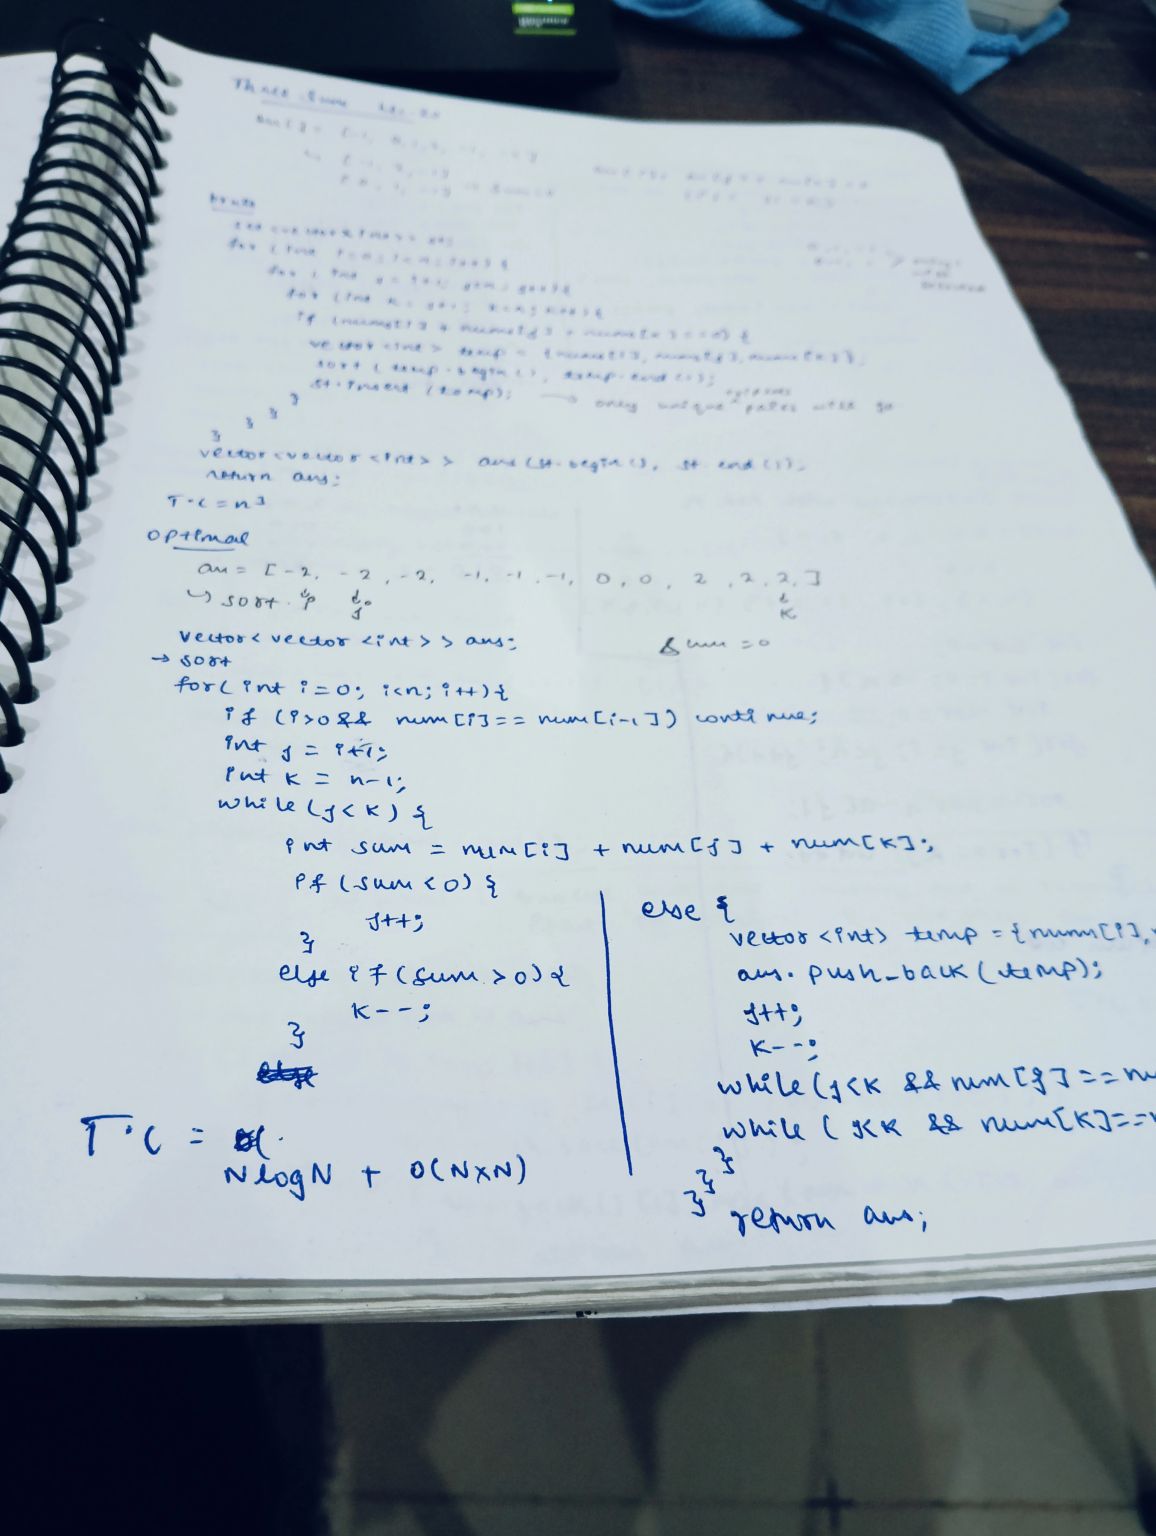 Three Sum
Brute
for ( int i=0; i<n; i++) {
for ( int
for (int k = j+1; k<n; k++) {
if (nums[i] + nums[j] + nums[k] == 0) {
vector <int> temp = {nums[i], nums[j], nums[k]};
sort ( temp.begin(), temp.end());
st.insert (temp); → only unique pairs will go
}
}
}
}
vector<vector <int> > ans (st.begin(), st.end());
return ans;
T.C = n³
Optimal
arr = [-2, -2, -2, -1, -1, -1, 0, 0, 2, 2, 2,]
↳ sort. i j k
vector< vector <int> > ans; sum = 0
→ sort
for( int i = 0; i<n; i++){
if (i>0 && num[i] == num[i-1]) continue;
int j = i+1;
int k = n-1;
while (j<k) {
int sum = num[i] + num[j] + num[k];
if (sum < 0) {
j++;
}
else if (sum > 0) {
k--;
}
else {
vector <int> temp = {num[i],
ans. push_back (temp);
j++;
k--;
while (j<k && num [j] ==
while ( j<k && num[k]==
}
}
}
return ans;
T.C =
N log N + O(N×N)